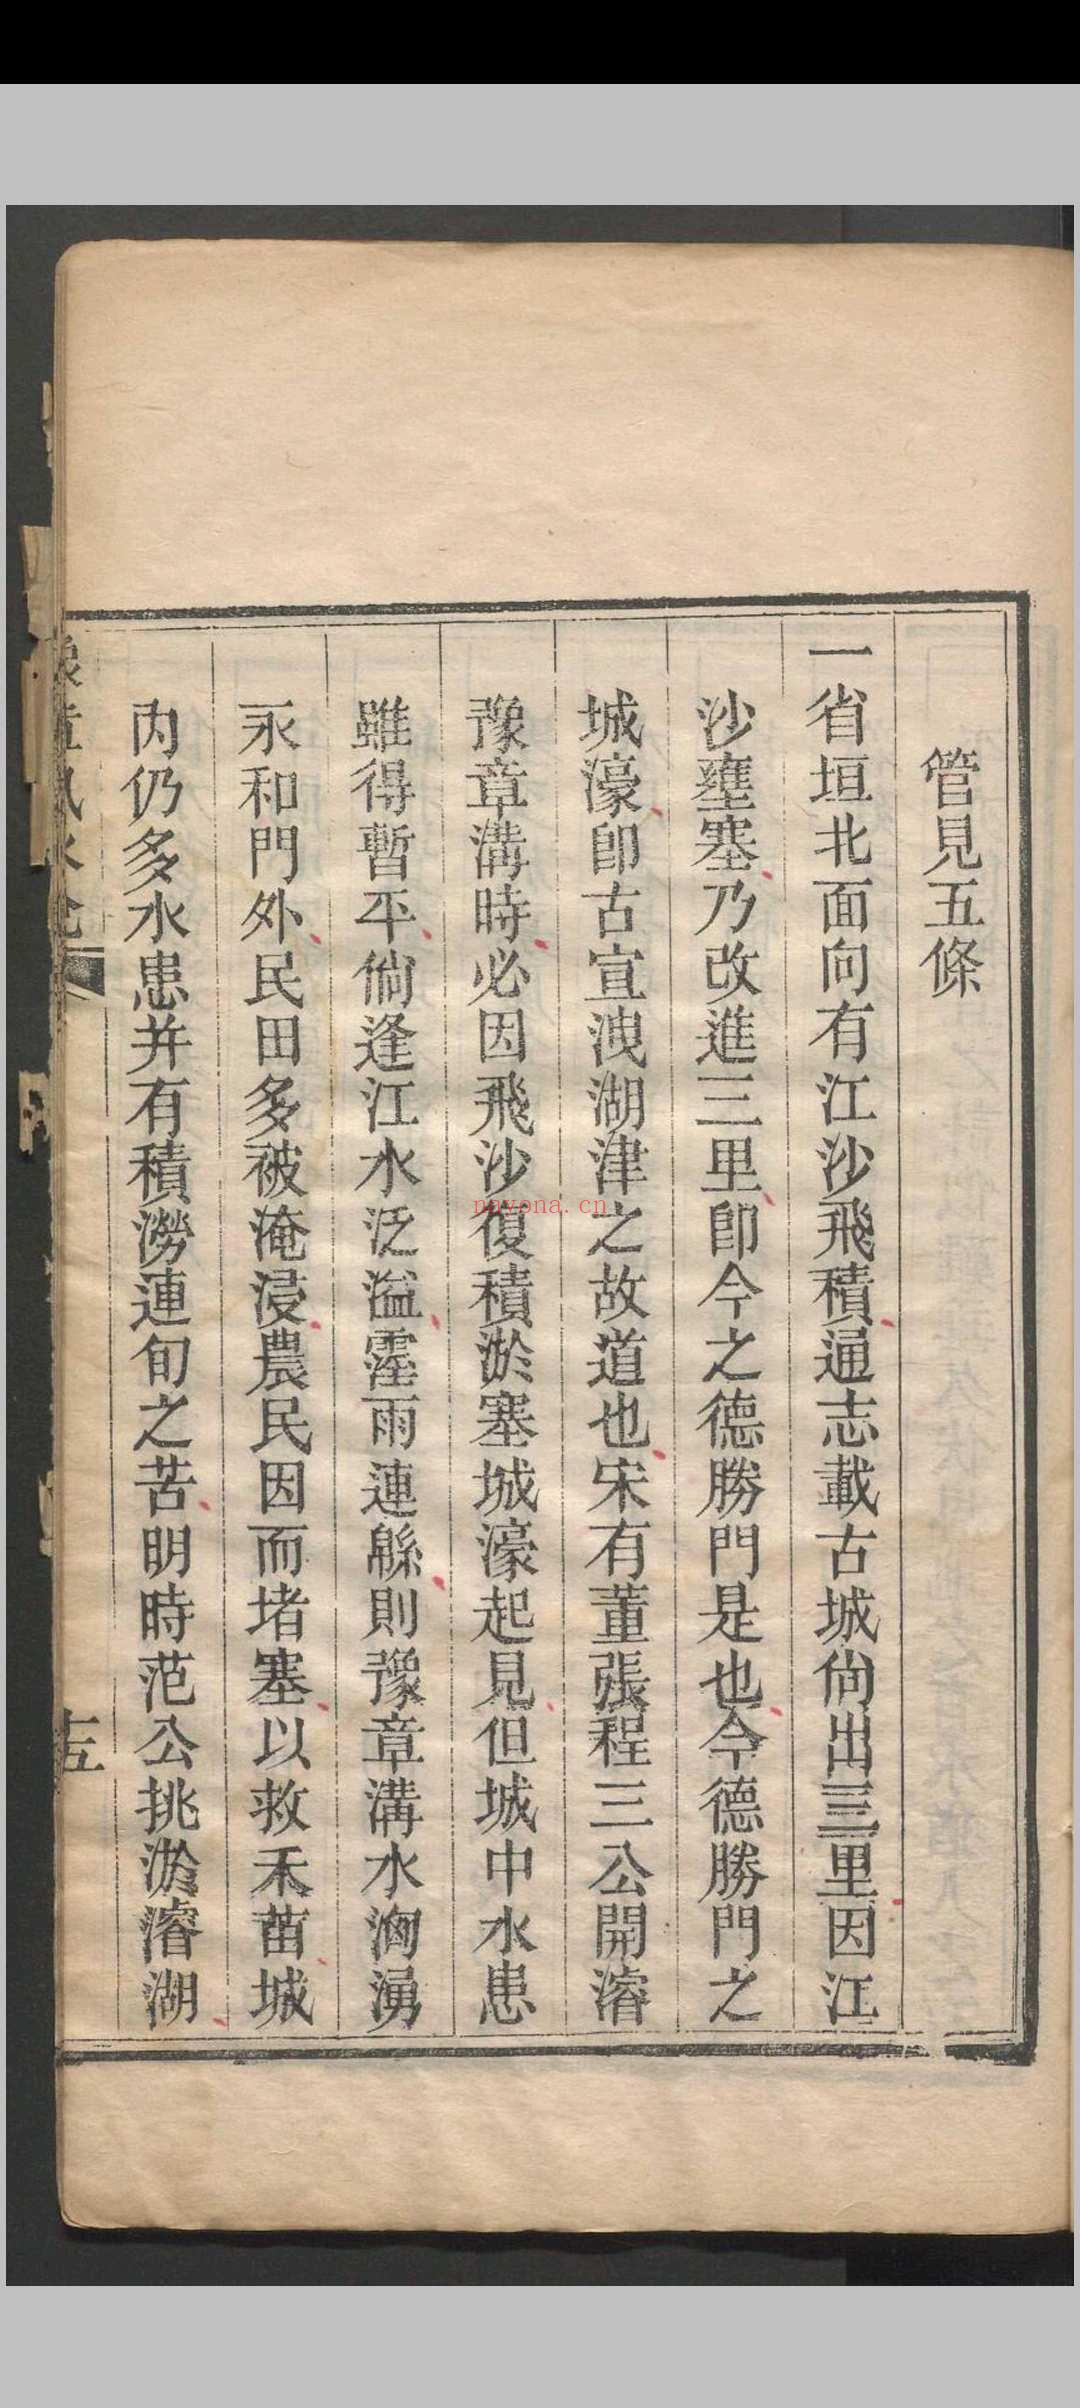 管見五條
一省垣北面向有江沙飛積通志載古城尙出三里因江
沙壅塞乃改進三里卽今之德勝門是也今德勝門之
城濠卽古宣洩湖津之故道也宋有董張程三公開濬
豫章溝時必因飛沙復積淤塞城濠起見但城中水患
雖得暫平倘逢江水泛溢霪雨連緜則豫章溝水洶湧
永和門外民田多被淹浸農民因而堵塞以救禾苗城
內仍多水患并有積澇連旬之苦明時范公挑淤濬湖
豫章風水論
十五
nayona.cn